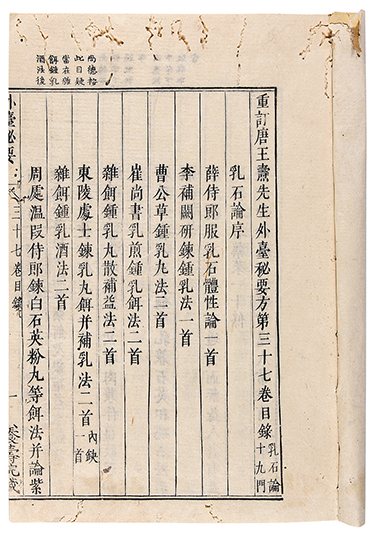 重訂唐王燾先生外臺秘要方第三十七卷目錄 乳石論 十九門
乳石論序
薛侍郎服乳石體性論一首
李補闕研鍊鍾乳法一首
曹公草鍾乳丸法二首
崔尚書乳煎鍾乳餌法二首
雜餌鍾乳丸散補益法二首
東陵處士鍊乳丸餌并補乳法二首 內缺 一首
雜餌鍾乳酒法二首
周處溫授侍郎鍊白石英粉丸等餌法并論紫
尚德裕
此目缺
當在雜
餌鍾乳
酒法後
外臺秘要
三十七卷目錄
一